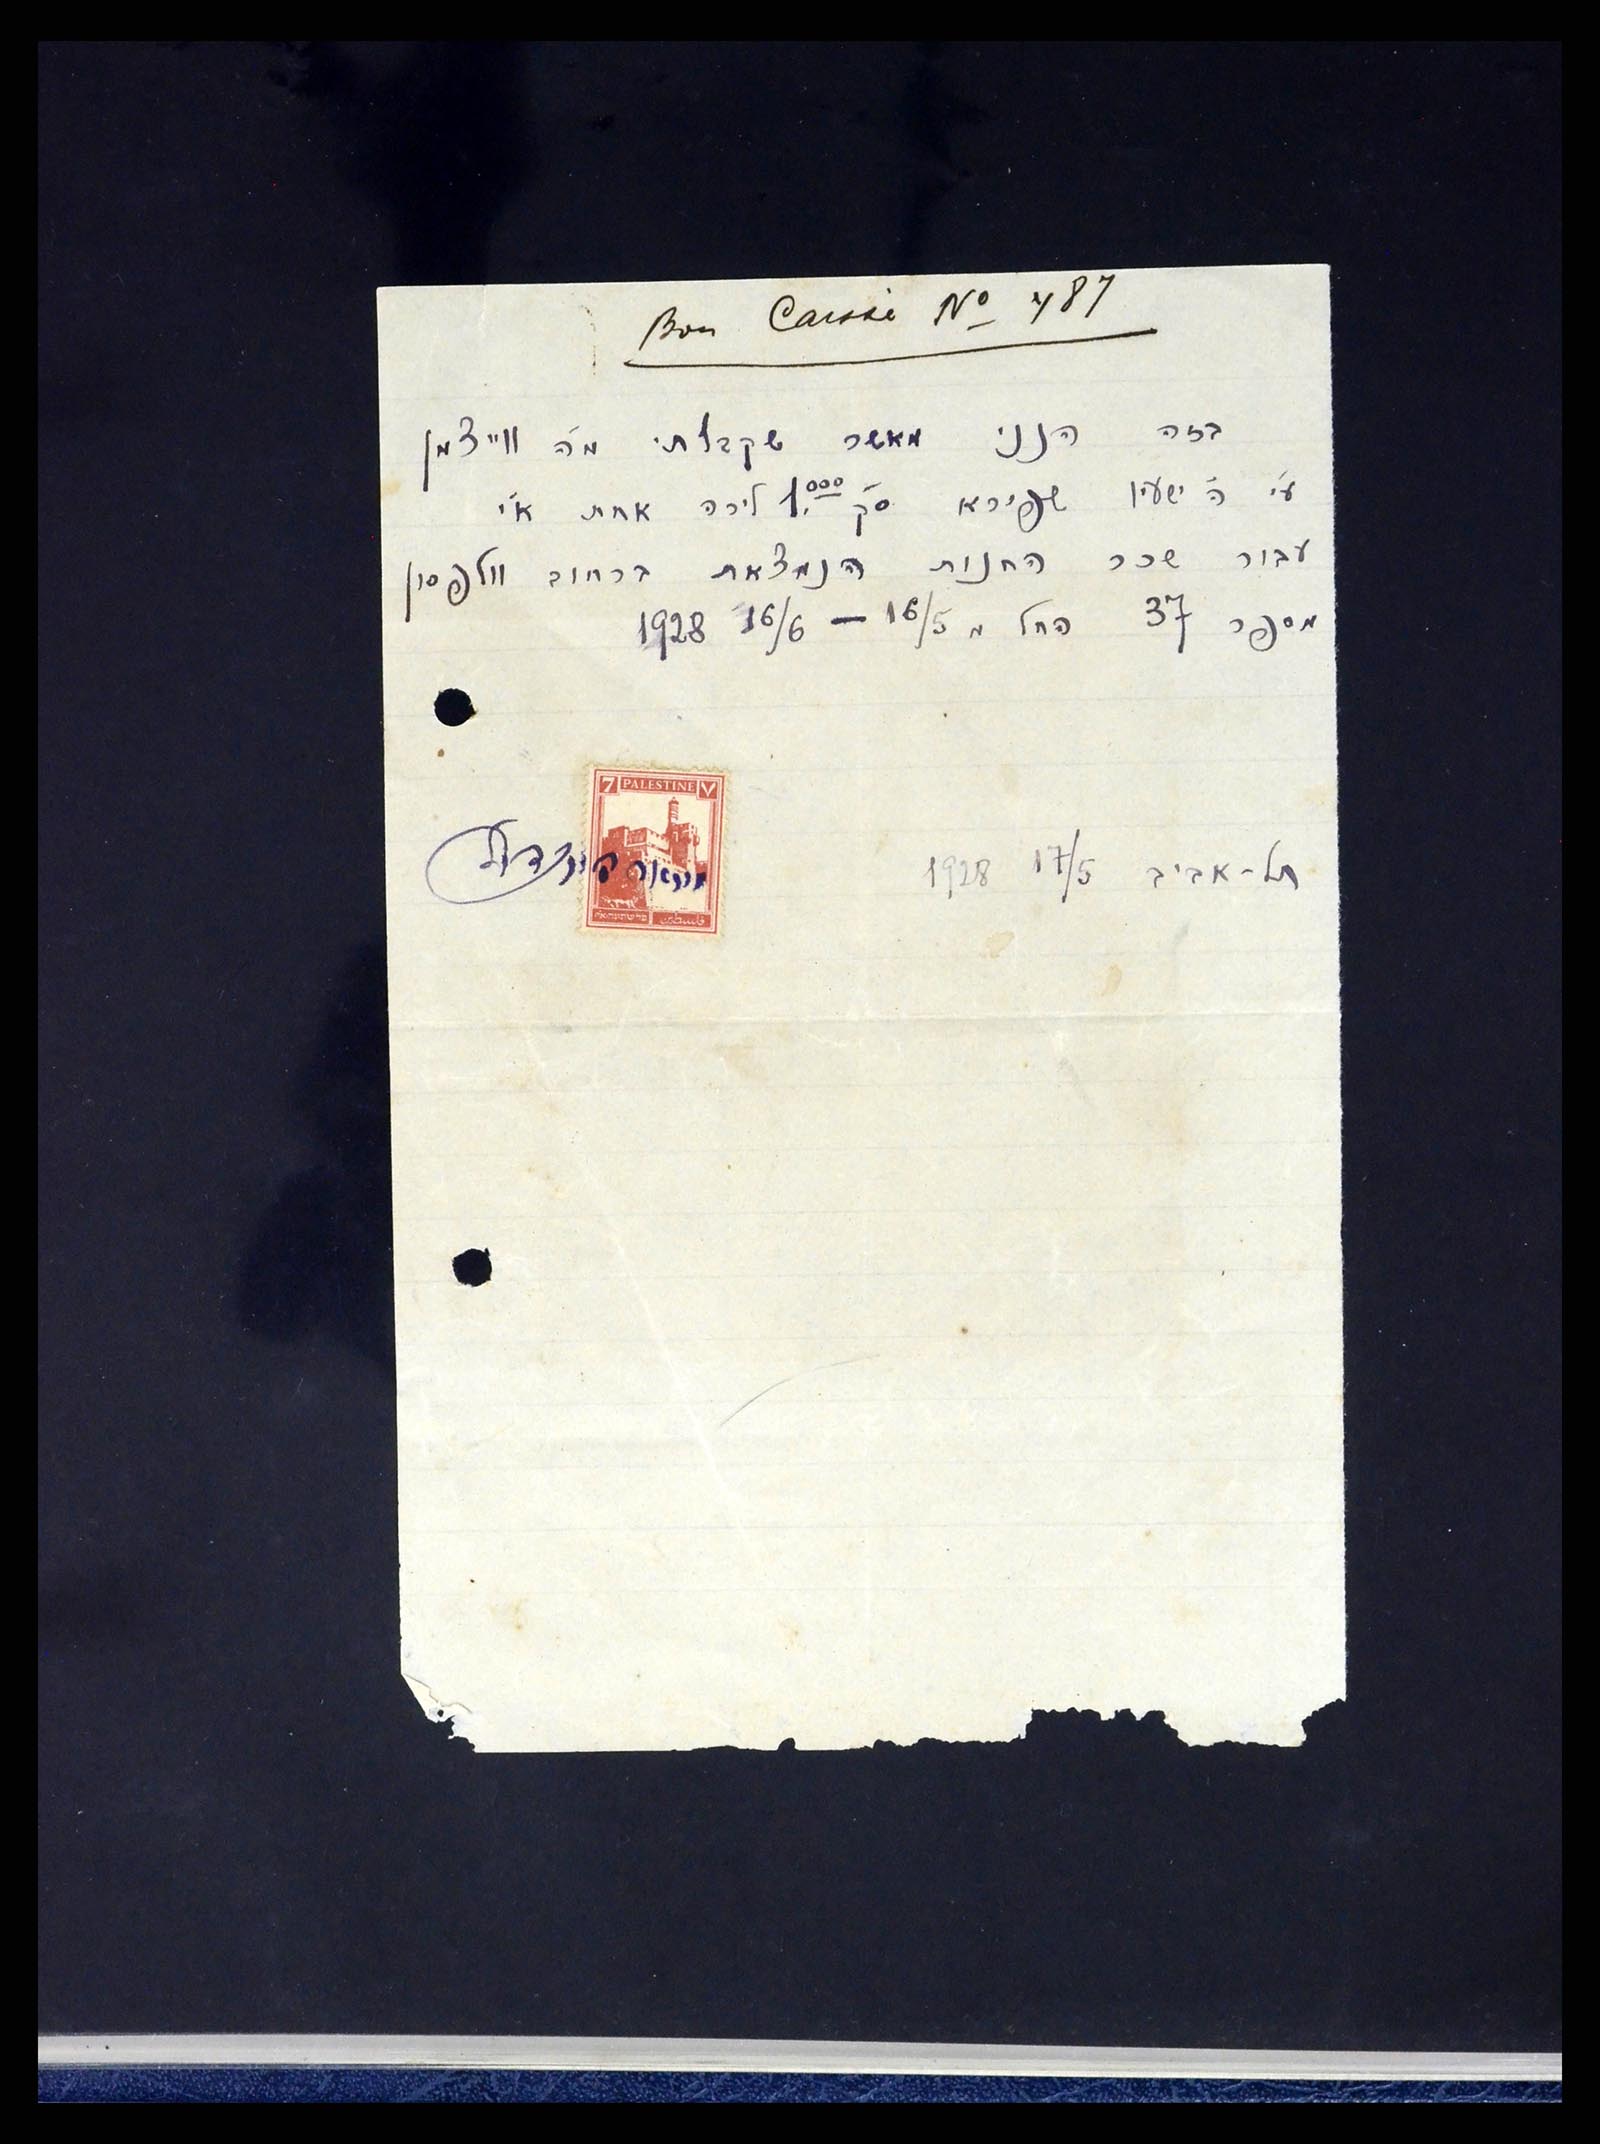 Bon Caisse Nº 487
בזה הנני מאשר שקבלתי מ'ה ווייצמן
ע"י ה' ישעיו שפירא ס"ק 1.000 לירה אחת א"י
עבור שכר החנות הנמצאת ברחוב וולפסון
מספר 37 החל מ 16/5 — 16/6 1928
7 PALESTINE ٧
فلسطين פלשתינה א״י
תל-אביב 17/5 1928